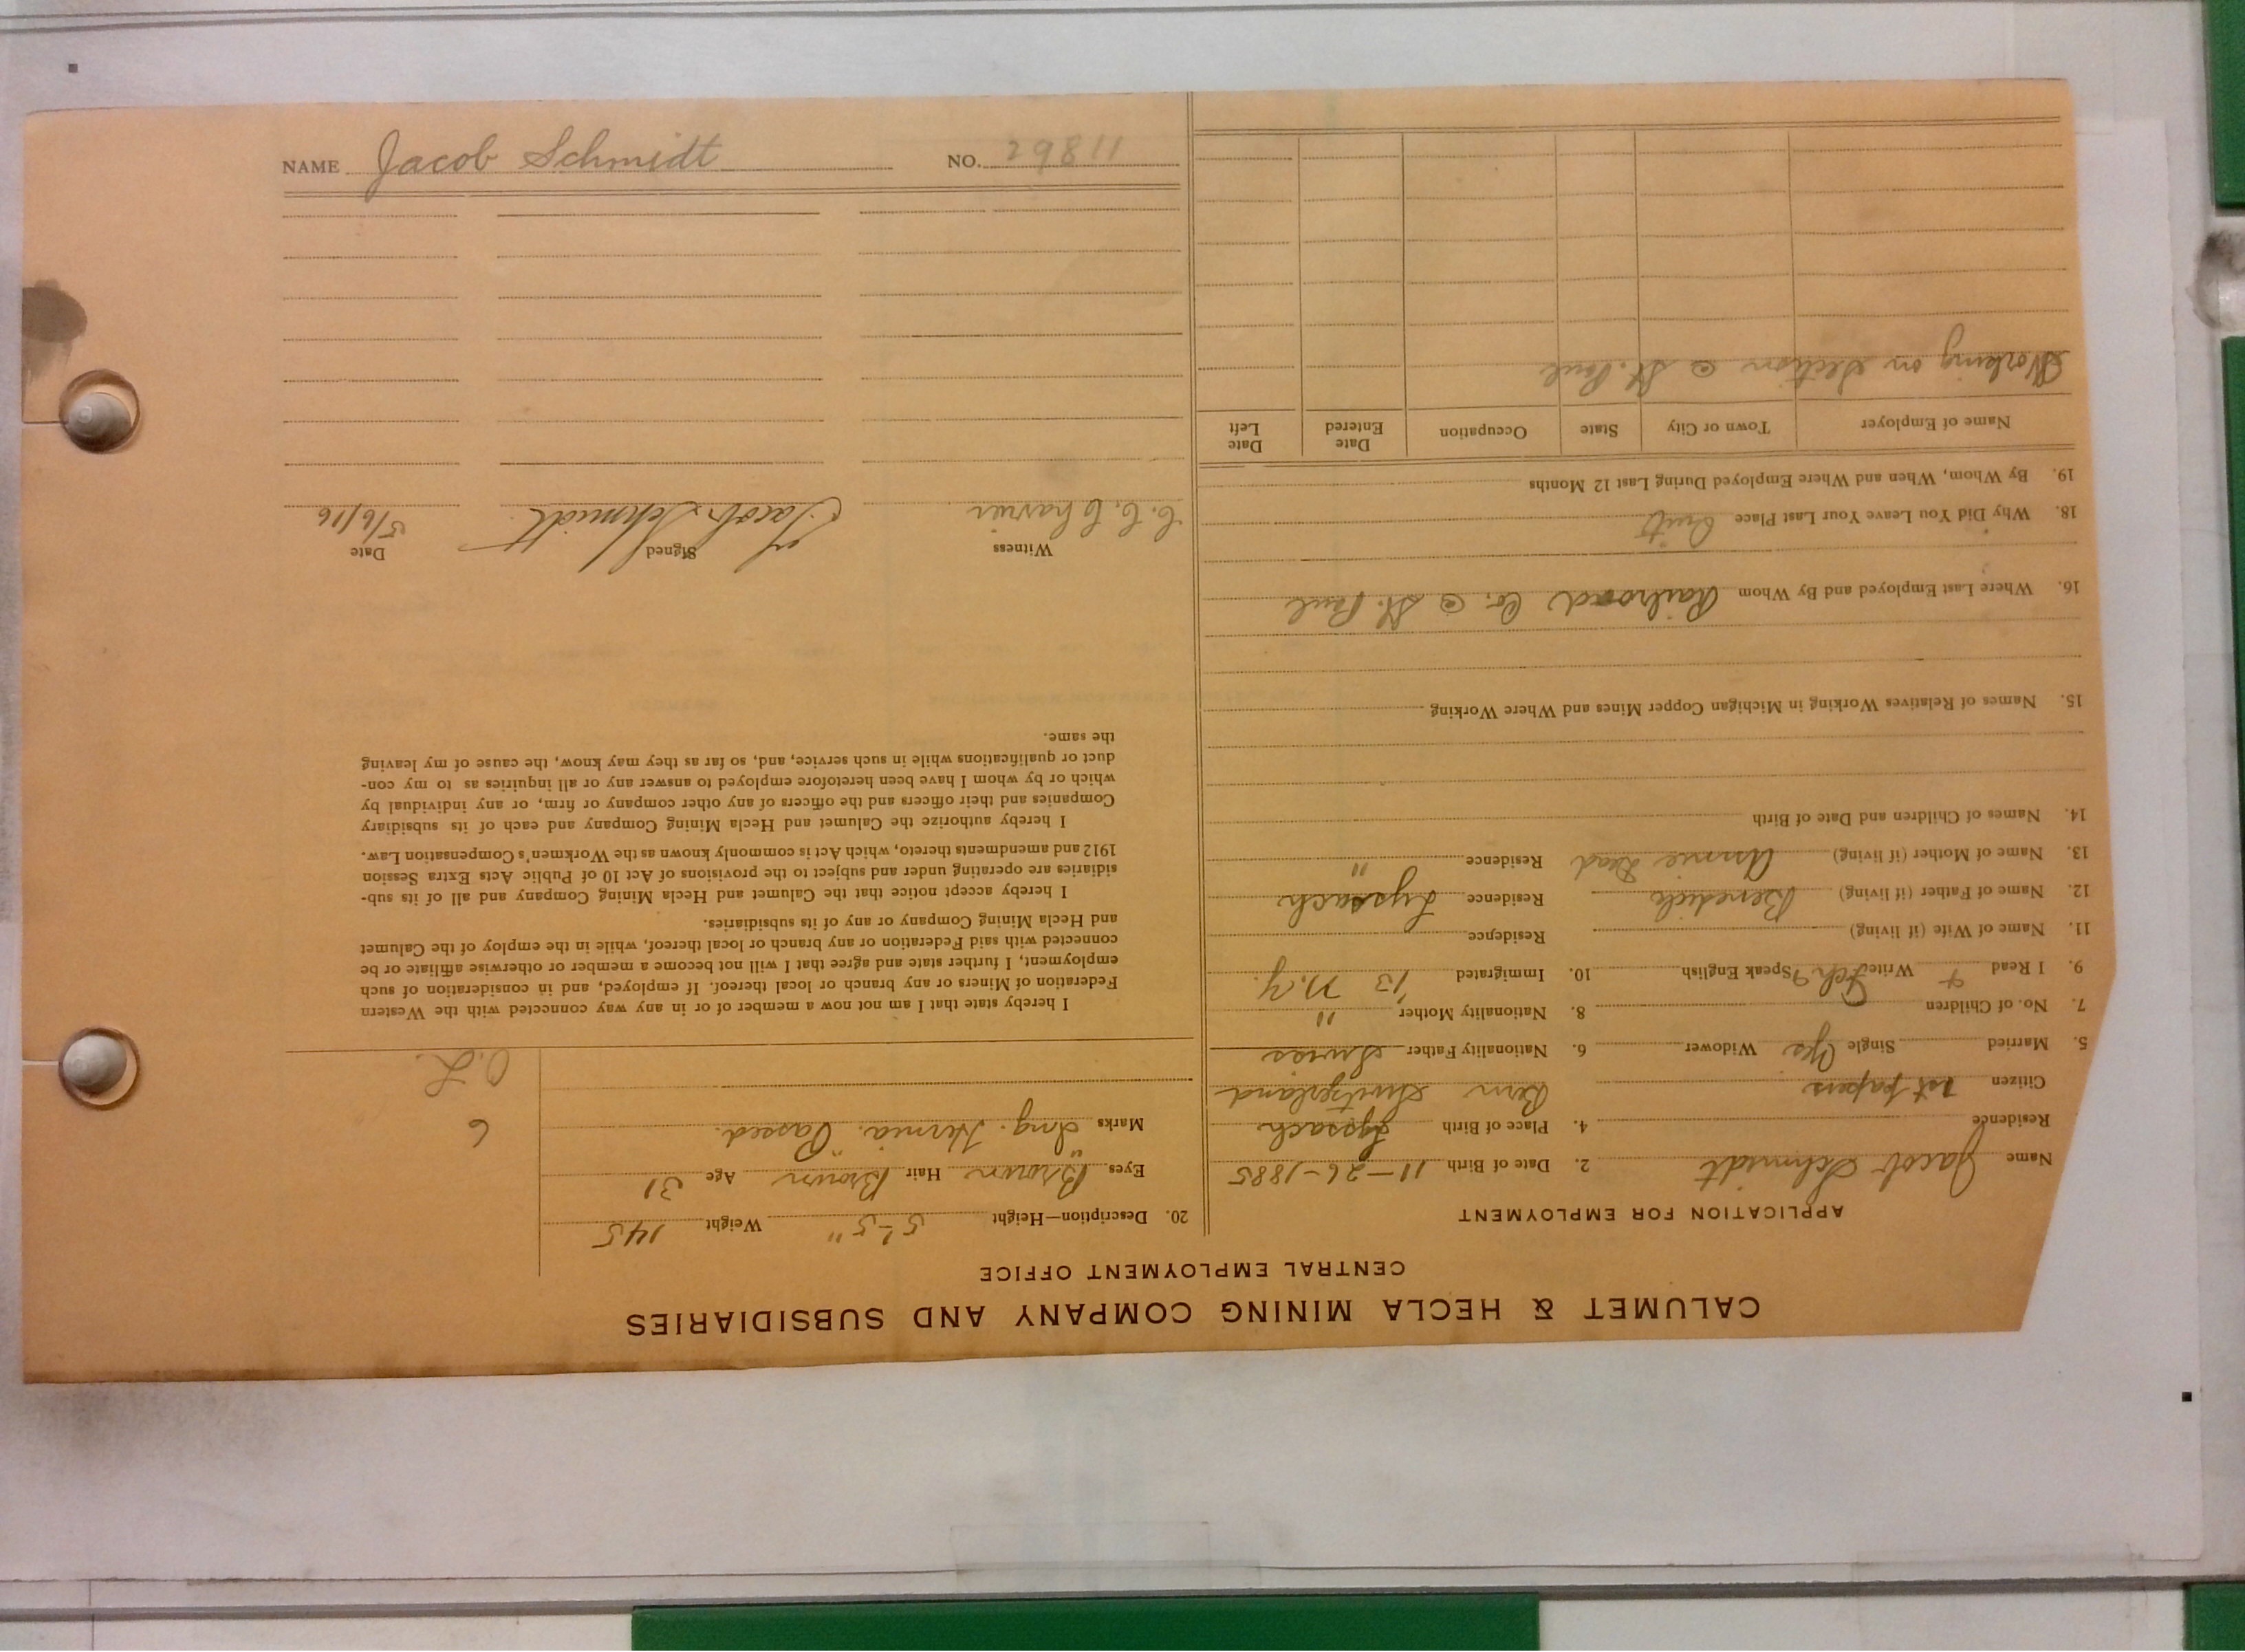 NAME Jacob Schmidt NO. 29811
CALUMET & HECLA MINING COMPANY AND SUBSIDIARIES
CENTRAL EMPLOYMENT OFFICE
APPLICATION FOR EMPLOYMENT
Name Jacob Schmidt 2. Date of Birth 11-26-1885
Residence 4. Place of Birth Lyssach
Citizen 1st papers Bern Switzerland
5. Married Single Yes Widower 6. Nationality Father Swiss
7. No. of Children 8. Nationality Mother "
9. I Read + Write Speak English 10. Immigrated '13 N.Y.
11. Name of Wife (if living) Residence
12. Name of Father (if living) Benedich Residence Lyssach
13. Name of Mother (if living) Annie Dead Residence "
14. Names of Children and Date of Birth
15. Names of Relatives Working in Michigan Copper Mines and Where Working
16. Where Last Employed and By Whom Railroad Co. @ St. Paul
18. Why Did You Leave Your Last Place Quit
19. By Whom, When and Where Employed During Last 12 Months
Name of Employer Town or City State Occupation Date Entered Date Left
Working on Section @ St. Paul
20. Description—Height 5'-5" Weight 145
Eyes Brown Hair Brown Age 31
Marks Ing. Hernia. "Passed.
6
O.L.
I hereby state that I am not now a member of or in any way connected with the Western
Federation of Miners or any branch or local thereof. If employed, and in consideration of such
employment, I further state and agree that I will not become a member or otherwise affiliate or be
connected with said Federation or any branch or local thereof, while in the employ of the Calumet
and Hecla Mining Company or any of its subsidiaries.
I hereby accept notice that the Calumet and Hecla Mining Company and all of its sub-
sidiaries are operating under and subject to the provisions of Act 10 of Public Acts Extra Session
1912 and amendments thereto, which Act is commonly known as the Workmen's Compensation Law.
I hereby authorize the Calumet and Hecla Mining Company and each of its subsidiary
Companies and their officers and the officers of any other company or firm, or any individual by
which or by whom I have been heretofore employed to answer any or all inquiries as to my con-
duct or qualifications while in such service, and, so far as they may know, the cause of my leaving
the same.
Witness Signed Date
C. C. Charrier Jacob Schmidt 5/6/16